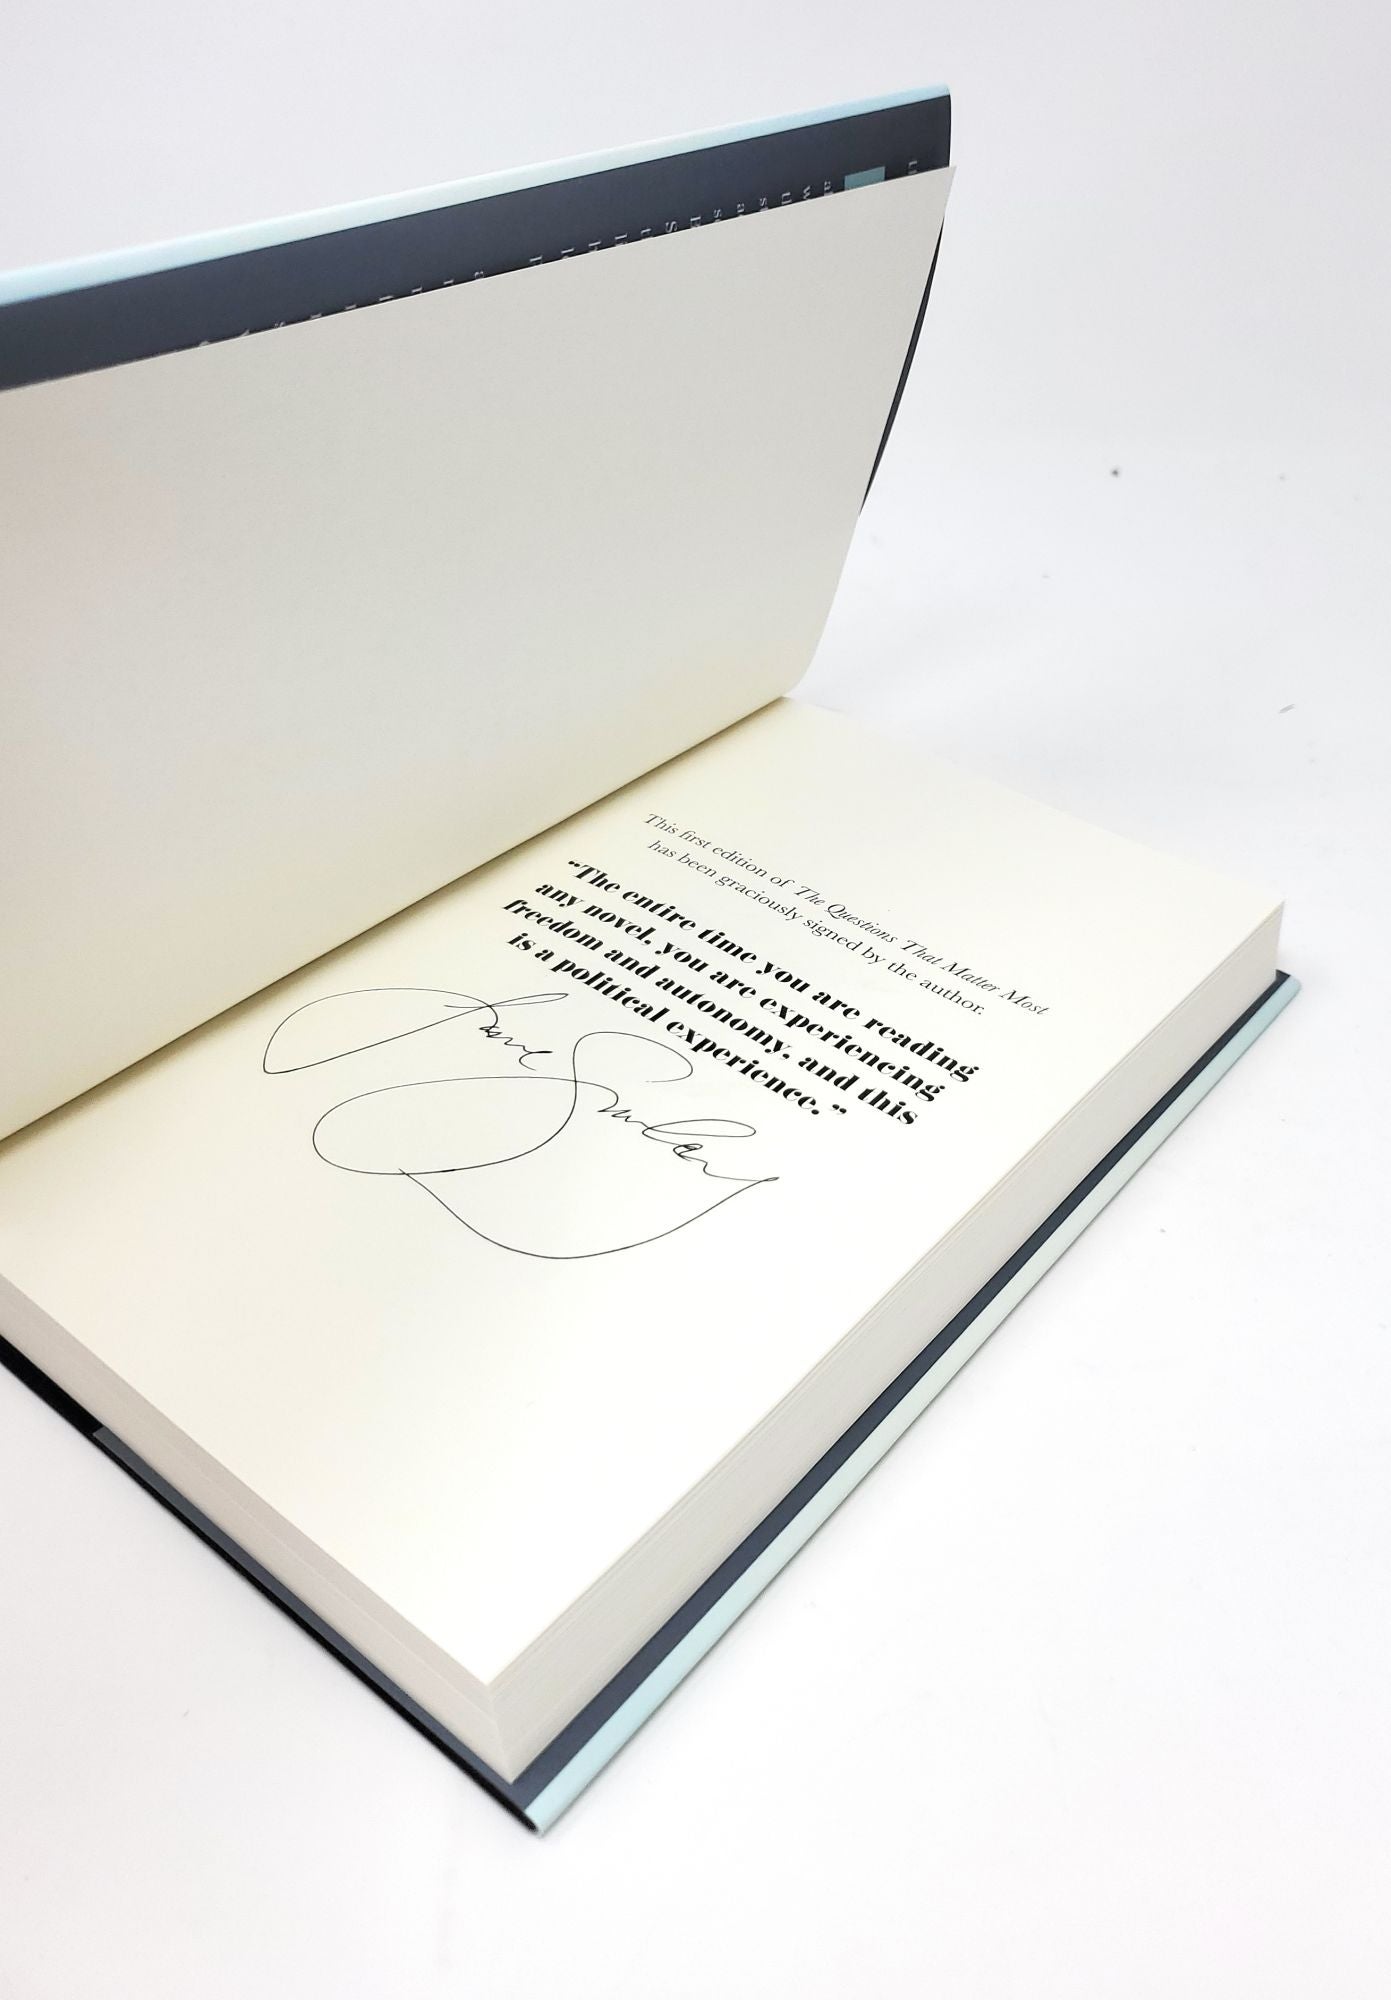 This first edition of The Questions That Matter Most
has been graciously signed by the author.
“The entire time you are reading
any novel, you are experiencing
freedom and autonomy, and this
is a political experience.”
Jane Smiley